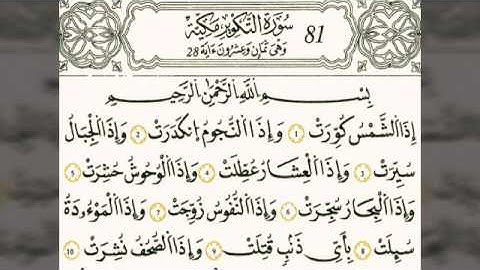 سُورَةُ التَّكْوِيرِ مَكِّيَّةٌ 81
وَهِيَ ثَمَانٍ وَعِشْرُونَ ءَايَةً 28
بِسْمِ اللَّهِ الرَّحْمَٰنِ الرَّحِيمِ
إِذَا الشَّمْسُ كُوِّرَتْ 1 وَإِذَا النُّجُومُ انْكَدَرَتْ 2 وَإِذَا الْجِبَالُ
سُيِّرَتْ 3 وَإِذَا الْعِشَارُ عُطِّلَتْ 4 وَإِذَا الْوُحُوشُ حُشِرَتْ 5
وَإِذَا الْبِحَارُ سُجِّرَتْ 6 وَإِذَا النُّفُوسُ زُوِّجَتْ 7 وَإِذَا الْمَوْءُ‍ۥدَةُ
سُئِلَتْ 8 بِأَيِّ ذَنْبٍ قُتِلَتْ 9 وَإِذَا الصُّحُفُ نُشِرَتْ 10